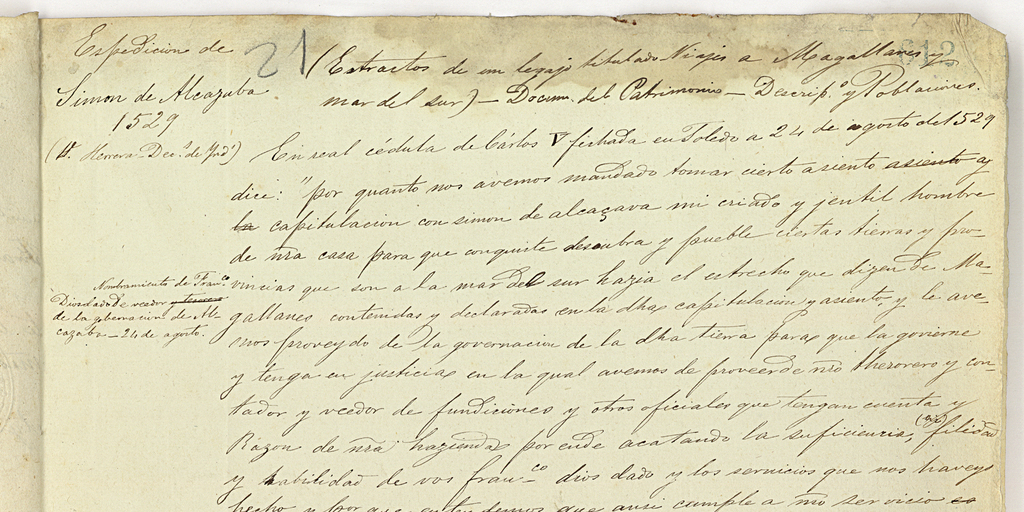 Espedicion de
Simon de Alcazaba
1529
(V. Herrera - Dec.s de Ynd.s)
21
(Estractos de un legajo titulado Viajes a Magallanes y
mar del sur) - Docum. del Patrimonio - Descrip.s y Poblaciones.
En real cédula de Cárlos V fechada en Toledo a 24 de agosto del 1529
dice: "por quanto nos avemos mandado tomar cierto asiento asiento y
la capitulacion con simon de alcaçava mi criado y jentil hombre
de nra casa para que conquiste descubra y pueble ciertas tierras y pro-
vincias que son a la mar del sur hazia el estrecho que dizen de Ma-
gallanes contenidas y declaradas en la dha capitulacion y asiento y le ave-
mos proveydo de la governacion de la dha tierra para que la govierne
y tenga en justicia en la qual avemos de proveer de nro thezorero y con-
tador y veedor de fundiciones y otros oficiales que tengan cuenta y
Razon de nra hazienda por ende acatando la suficiencia, filidad
y habilidad de vos fran.co dios dado y los servicios que nos haveys
hecho y porque entendemos que ansi cumple a nro servicio es
Nombramiento de Fran.co
Diosdado de veedor
de la gobernacion de Al-
cazaba - 24 de agosto.